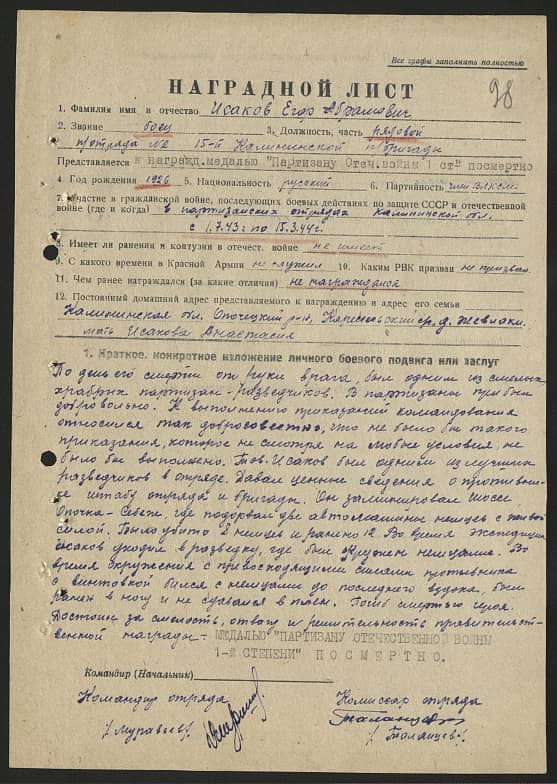 Все графы заполнять полностью
98
НАГРАДНОЙ ЛИСТ
1. Фамилия имя и отчество Исаков Егор Абрамович
2. Звание боец 3. Должность, часть рядовой
п/отряда №2 15-й Калининской п/бригады
Представляется к награжд. медалью "Партизану Отеч. войны 1 ст" посмертно
4. Год рождения 1926 5. Национальность русский 6. Партийность член ВЛКСМ
7. Участие в гражданской войне, последующих боевых действиях по защите СССР и отечественной
войне (где и когда) в партизанских отрядах Калининской обл.
с 1.7.43г по 15.3.44г.
8. Имеет ли ранения и контузии в отечест. войне не имеет
9. С какого времени в Красной Армии не служил 10. Каким РВК призван не призвал.
11. Чем ранее награждался (за какие отличия) не награждался
12. Постоянный домашний адрес представляемого к награждению и адрес его семьи
Калининская обл. Опочецкий р-н, д.
мать Исакова Анастасия
1. Краткое, конкретное изложение личного боевого подвига или заслуг
По день его смерти от руки врага, был одним из смелых
храбрых партизан-разведчиков. В партизаны прибыл
добровольно. К выполнению приказаний командования
относился так добросовестно, что не было бы такого
приказания, которое не смотря на любые условия, не
было бы выполнено. Тов. Исаков был одним из лучших
разведчиков в отряде. Давал ценные сведения о противни-
ке штабу отряда и бригады. Он заминировал шоссе
Опочка-Себеж, где подорвал две автомашины немцев с живой
силой. Было убито 8 немцев и ранено 12. Во время экспедиции
Исаков уходил в разведку, где был окружен немцами. Во
время окружения с превосходящими силами противника
с винтовкой бился с немцами до последнего вздоха, был
ранен в ногу и не сдавался в плен. Погиб смертью героя.
Достоин за смелость, отвагу и решительность правительст-
венной награды - МЕДАЛЬЮ "ПАРТИЗАНУ ОТЕЧЕСТВЕННОЙ ВОЙНЫ
1-Й СТЕПЕНИ" ПОСМЕРТНО.
Командир (Начальник)
Командир отряда Комиссар отряда
/Муравьев/ /Таланцев/